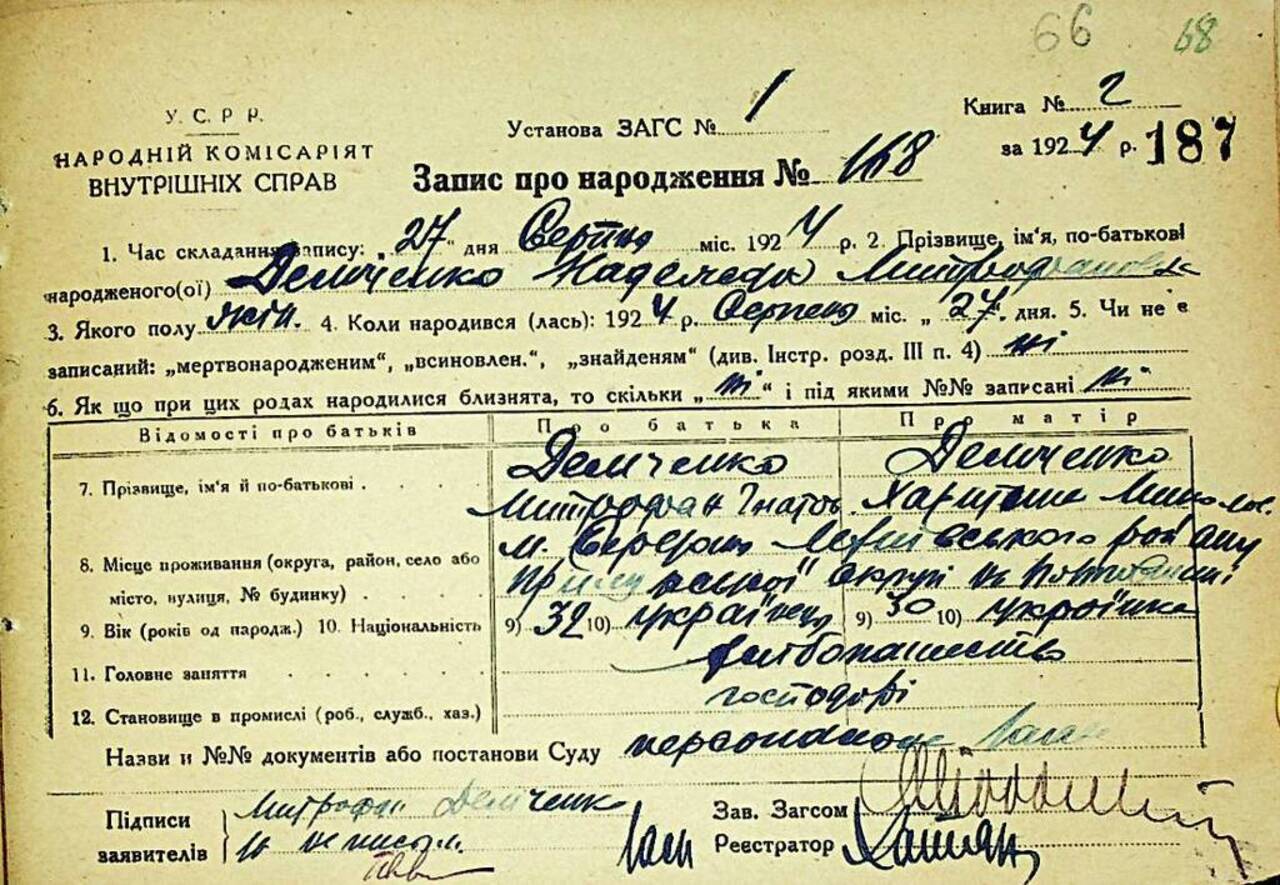 66 68
У. С. Р. Р.
НАРОДНІЙ КОМІСАРІЯТ
ВНУТРІШНІХ СПРАВ
Установа ЗАГС № 1
Книга № 2
за 1924 р. 187
Запис про народження № 168
1. Час складання запису: „27“ дня Серпня міс. 1924 р. 2. Прізвище, ім'я, по-батькові
народженого(ої) Демченко Надежда Митрофановна
3. Якого полу жін. 4. Коли народився (лась): 1924 р. Серпень міс. „27“. дня. 5. Чи не є
записаний: „мертвонародженим“, „всиновлен.“, „знайденям“ (див. Інстр. розд. III п. 4) ні
6. Як що при цих родах народилися близнята, то скільки „ні“ і під якими №№ записані ні
Відомості про батьків Про батька Про матір
Демченко Демченко
7. Прізвище, ім'я й по-батькові
Митрофан Гнатов.
8. Місце проживання (округа, район, село або
місто, вулиця, № будинку)
м. району
округи на
9. Вік (років од народж.) 10. Національність 9) 32 10) українець 9) 30 10) українка
11. Головне заняття
хлібопашество
12. Становище в промислі (роб., служб., хаз.)
господарі
Назви и №№ документів або постанови Суду
Підписи
заявителів
Митрофан Демченко
Зав. Загсом
Реєстратор